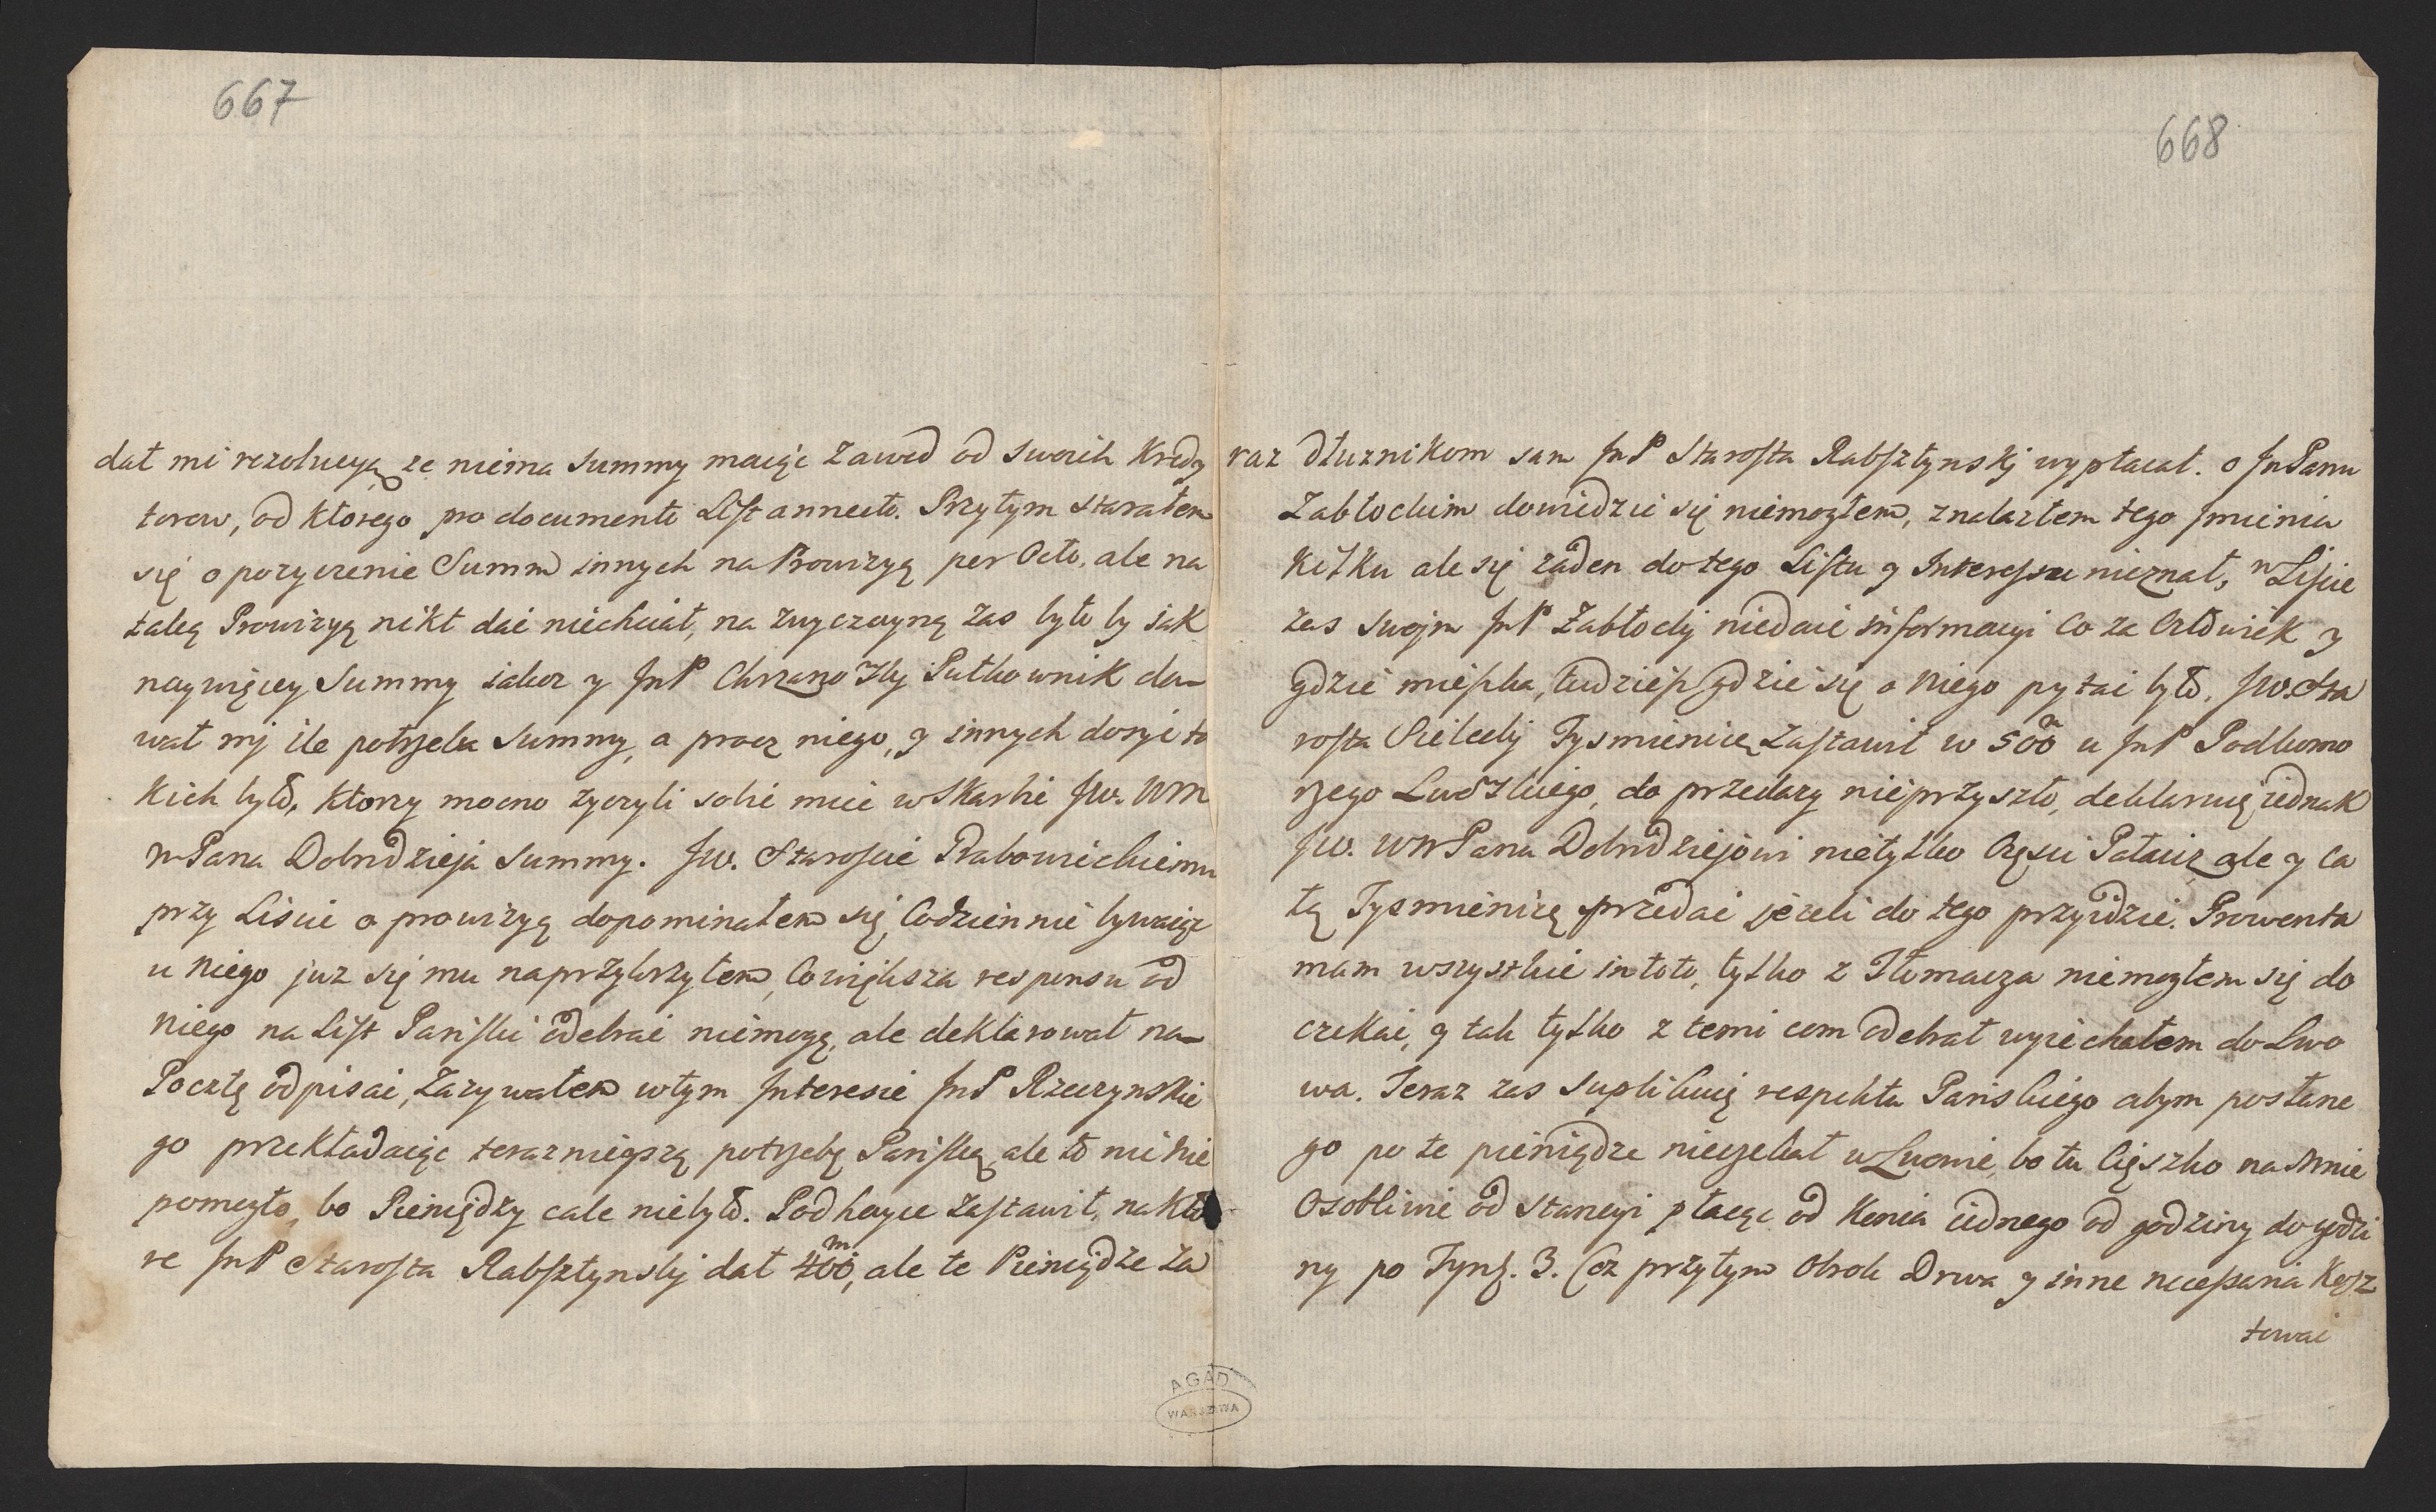 667
dał mi rezolucyą ze niema Summy maiąc Zawod od swoich Kredy
torow, od ktorego pro documento List annecto. Przytym starałem
się o pozyczenie Summ innych na Prowizyą per Octo, ale na
taką Prowizyą nikt dać niechciał, na zwyczayną zas było by jak
naywięcey Summy iakoz y JmP Chrzanowsky Pułkownik da-
wał mj ile potrzeba Summy, a procz niego, y innych dosyć ta
kich było, ktorzy mocno zyczyli sobie mieć w Skarbie Jw. WM
mPana Dobrodzieja Summy. Jw. Staroscie Rabowickiemu
przy Liscie o prowizyą dopominałem się, Codziennie bywaiąc
u niego juz się mu naprzykrzyłem, Cowiększa responsu od
niego na List Panski odebrać niemogę, ale deklarował na-
Pocztę odpisać, Zazywałem wtym Jnteresie JmP Rzeczynskie
go przekładaiąc teraznieyszą potrzebę Panską, ale to nic nie
pomogło, bo Pieniędzy cale niebyło. Podhayce zastawił, na kto
re JmP Starosta Rabsztynsky dał 400 m, ale te Pieniądze za
AGAD
WARSZAWA
668
raz dłuznikom sam JmP Starosta Rabsztynskj wypłacał. o JmPanu
Zabłockim dowiedzieć się niemogłem, znalazłem tego Jmienia
kilku ale się zaden do tego Listu y Interessu nieznał, w Liscie
zas swojm JmP Zabłocky niedaie informacyi Co za Człowiek y
gdzie mieszka, tudziesz gdzie się o niego pytać było. Jw. Sta
rosta Sielecky Tysmienicę Zastawił w 500 m u JmP Podkomo
rzego Lwowskiego, do przedazy nieprzyszło, deklaruię iednak
Jw. WMPanu Dobrodziejowi nietylko Częsci Pałaicz ale y Ca
łą Tysmienicę przedać jezeli do tego przyidzie. Prowenta
mam wszystkie in toto, tylko z Tłumacza niemogłem się do
czekać, y tak tylko z temi com odebrał wyiechałem do Lwo
wa. Teraz zas Suplikuię respektu Panskiego abym posłane
go po te pieniądze nieczekał w Lwowie, bo tu Cięszko na Mnie
Osobliwie od Stancyi płacąc od Konia iednego od godziny do godzi
ny po Tynf. 3. Coz przytym Obrok Drwa y inne necessaria Kosz
tować